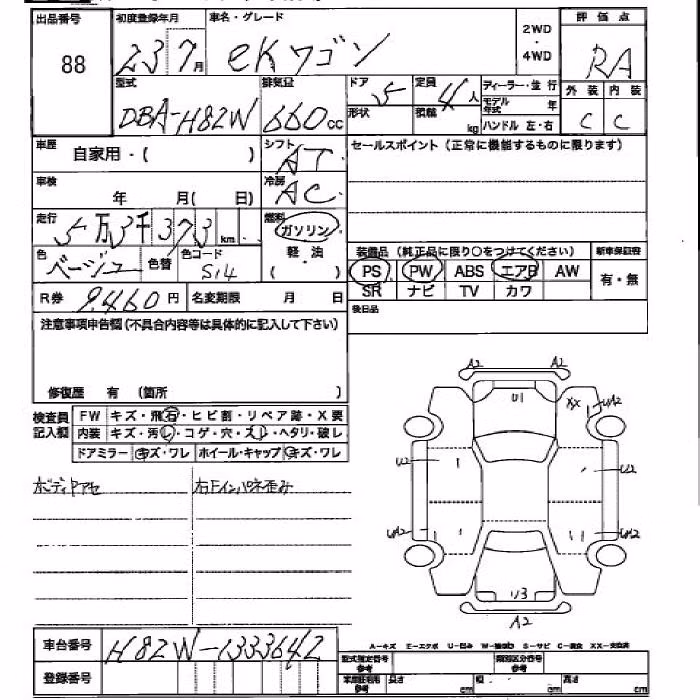 出品番号 初度登録年月 車名・グレード 2WD・4WD 評価点
88 23 7月 eKワゴン RA
型式 排気量 ドア 定員 ディーラー・並行 外装 内装
DBA-H82W 660cc 5 4人 モデル年式 年 C C
形状 積載 kg ハンドル 左・右
車歴 自家用・( ) シフト AT セールスポイント(正常に機能するものに限ります)
車検 年 月( 日) 冷房 AC
走行 5万3千373km 燃料 ガソリン
軽・油
( )
色 ベージュ 色替 色コード S14
装備品(純正品に限り○をつけてください) 新車保証書
PS PW ABS エアB AW 有・無
SR ナビ TV カワ
R券 9,460円 名変期限 月 日
後日品
注意事項申告欄(不具合内容等は具体的に記入して下さい)
修復歴 有 (箇所 )
検査員記入欄
FW キズ・飛石・ヒビ割・リペア跡・X要
内装 キズ・汚レ・コゲ・穴・スレ・ヘタリ・破レ
ドアミラー キズ・ワレ ホイール・キャップ キズ・ワレ
ボディヤケアセ 右Fインパネ歪み
A2 A2
U1
XX UA2
U2 U2
UA2 UA2
U3
A2
車台番号 H82W-1333642
登録番号
A-キズ E-エクボ U-凹み S-サビ XX-交換済
型式指定番号 参考 類別区分番号 参考
長さ cm 幅 cm 高さ cm